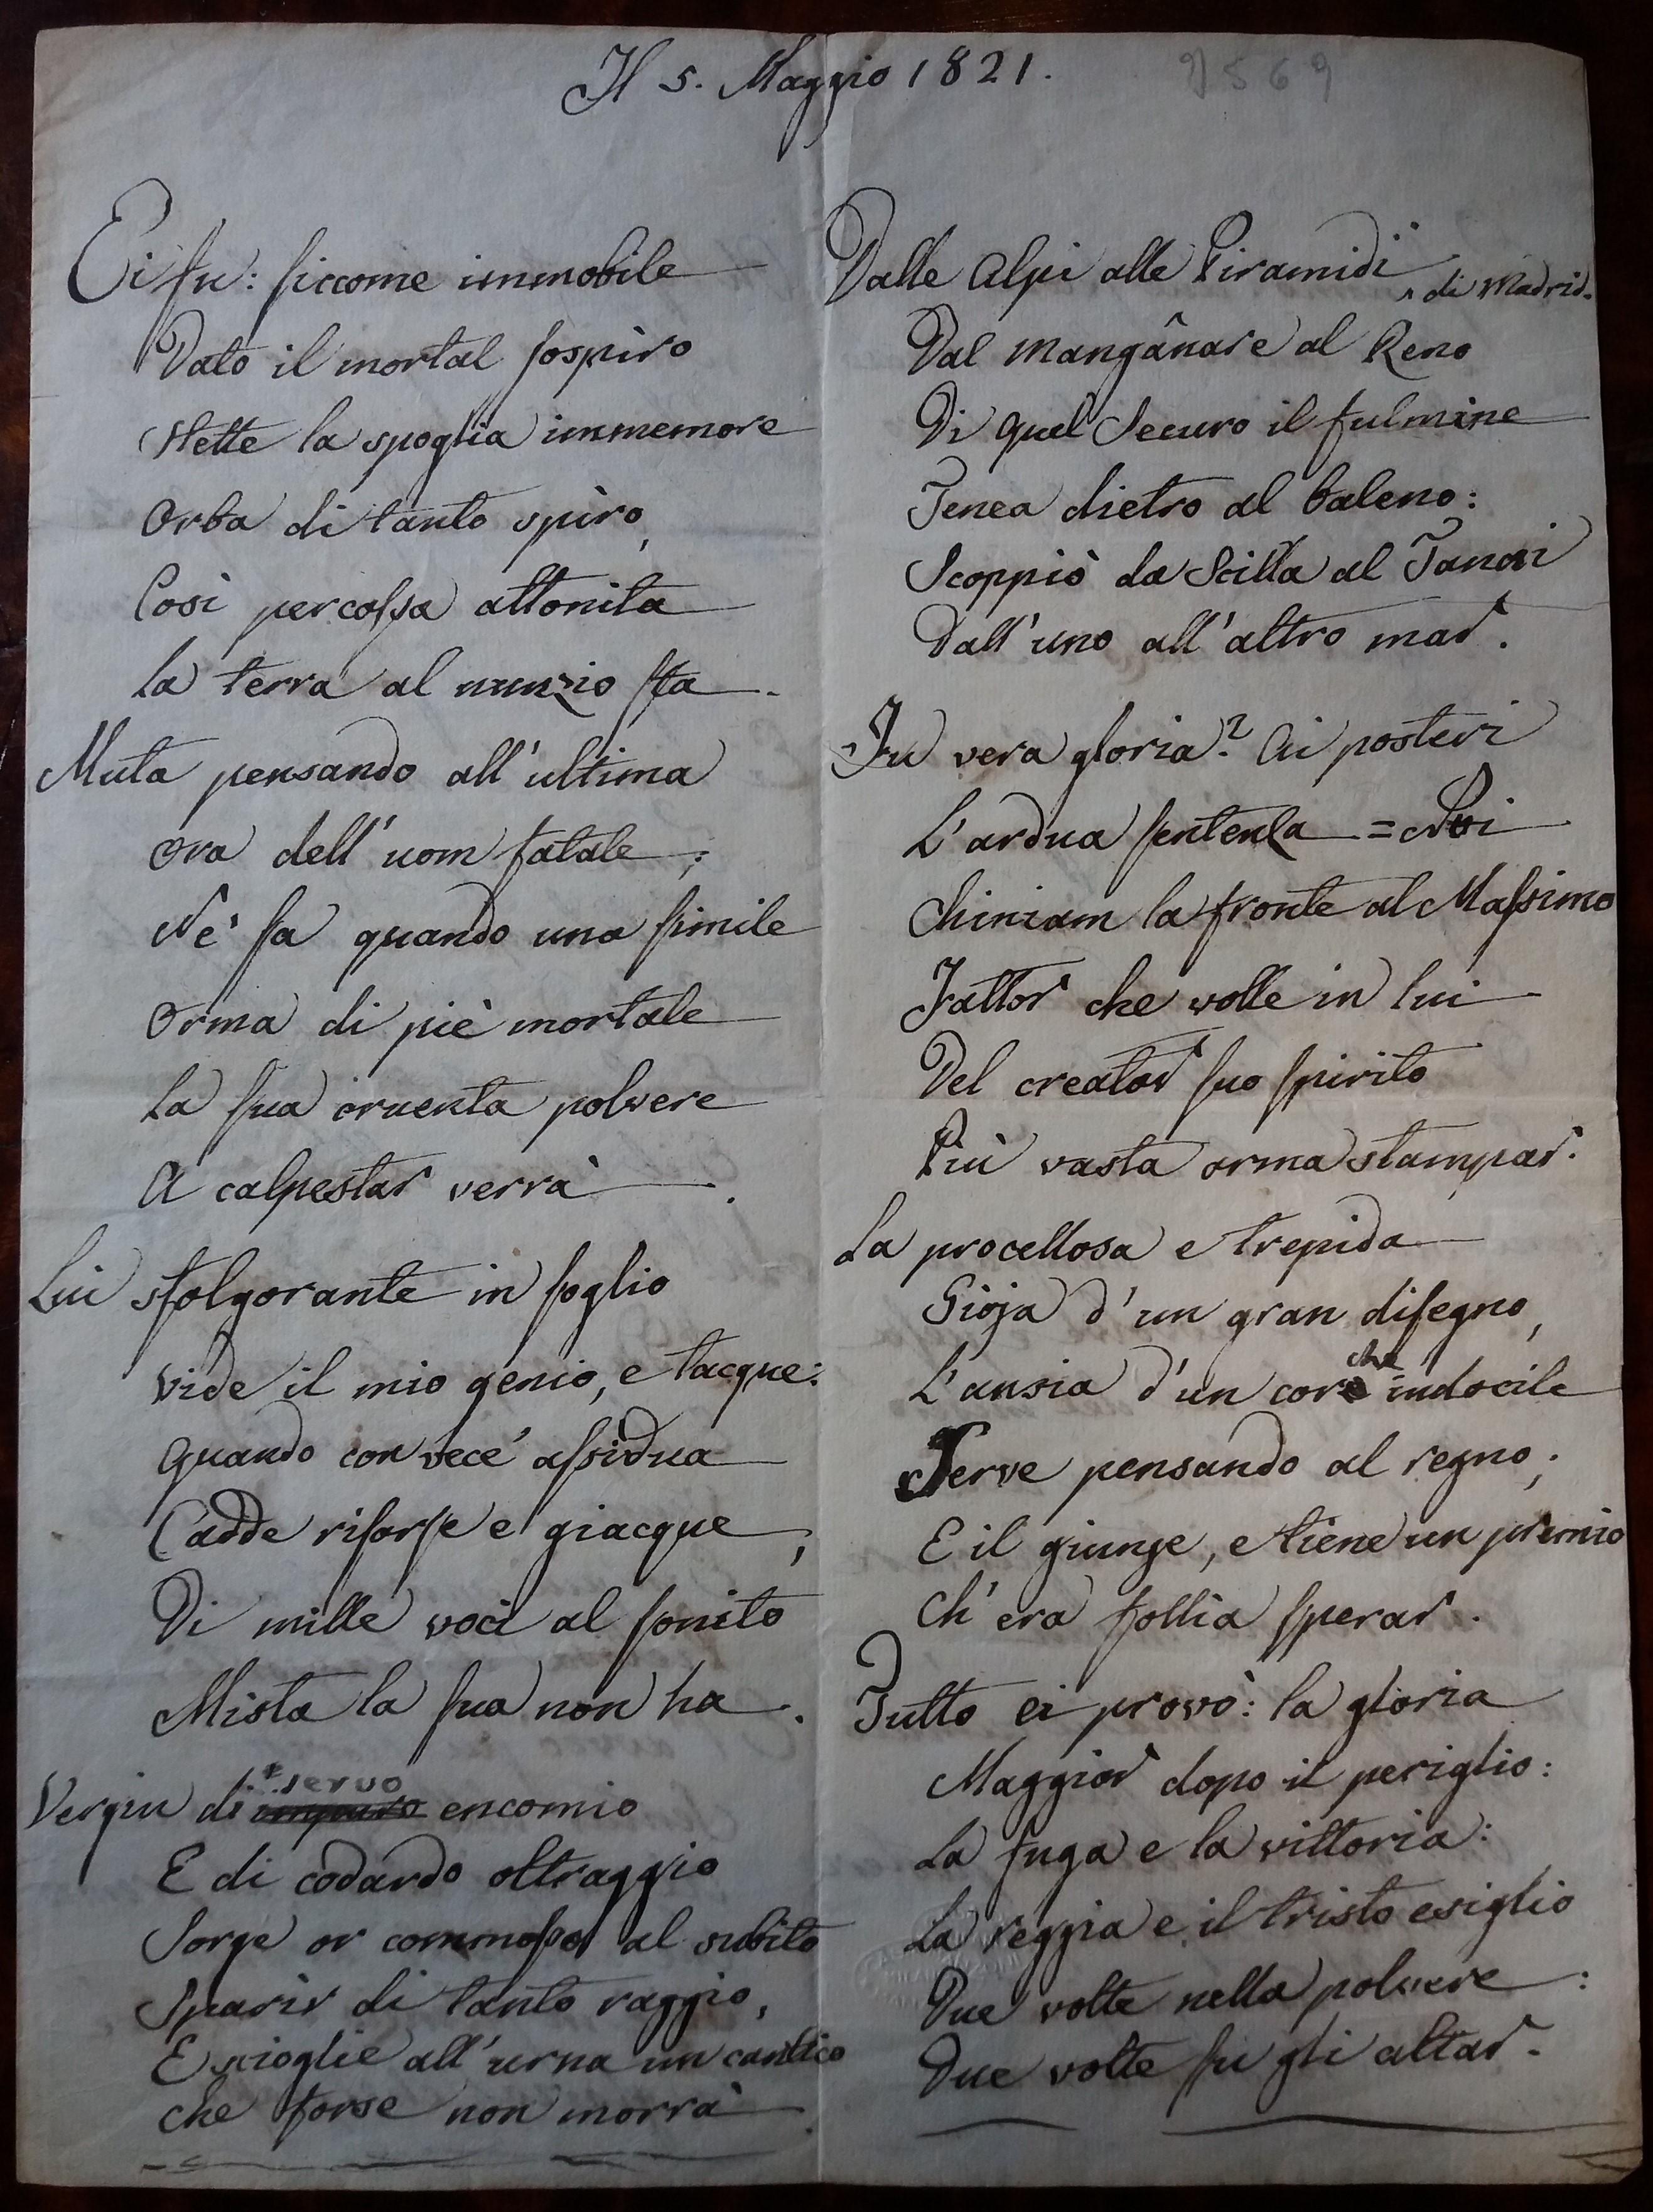 Il 5. Maggio 1821.
9569
Ei fu: siccome immobile
Dato il mortal sospiro
Stette la spoglia immemore
Orba di tanto spiro,
Così percossa attonita
La terra al nunzio sta.
Muta pensando all'ultima
Ora dell'uom fatale;
Nè sa quando una simile
Orma di piè mortale
La sua cruenta polvere
A calpestar verrà.
Lui sfolgorante in soglio
Vide il mio genio, e tacque:
Quando con vece assidua
Cadde risorse e giacque;
Di mille voci al sonito
Mista la sua non ha.
servo
Vergin di impuro encomio
E di codardo oltraggio
Sorge or commosso al subito
Sparir di tanto raggio,
E scioglie all'urna un cantico
Che forse non morrà.
Dalle Alpi alle Piramidi
di Madrid.
Dal Manganare al Reno
Di quel securo il fulmine
Tenea dietro al baleno:
Scoppiò da Scilla al Tanai
Dall'uno all'altro mar.
Fu vera gloria? Ai posteri
L'ardua sentenza = Noi
Chiniam la fronte al Massimo
Fattor che volle in lui
Del creator suo spirito
Più vasta orma stampar.
La procellosa e trepida
Gioja d'un gran disegno,
che
L'ansia d'un core indocile
Serve pensando al regno;
E il giunge, e tiene un premio
Ch'era follia sperar.
Tutto ei provò: la gloria
Maggior dopo il periglio:
La fuga e la vittoria:
La reggia e il tristo esiglio
Due volte nella polvere:
Due volte su gli altar.